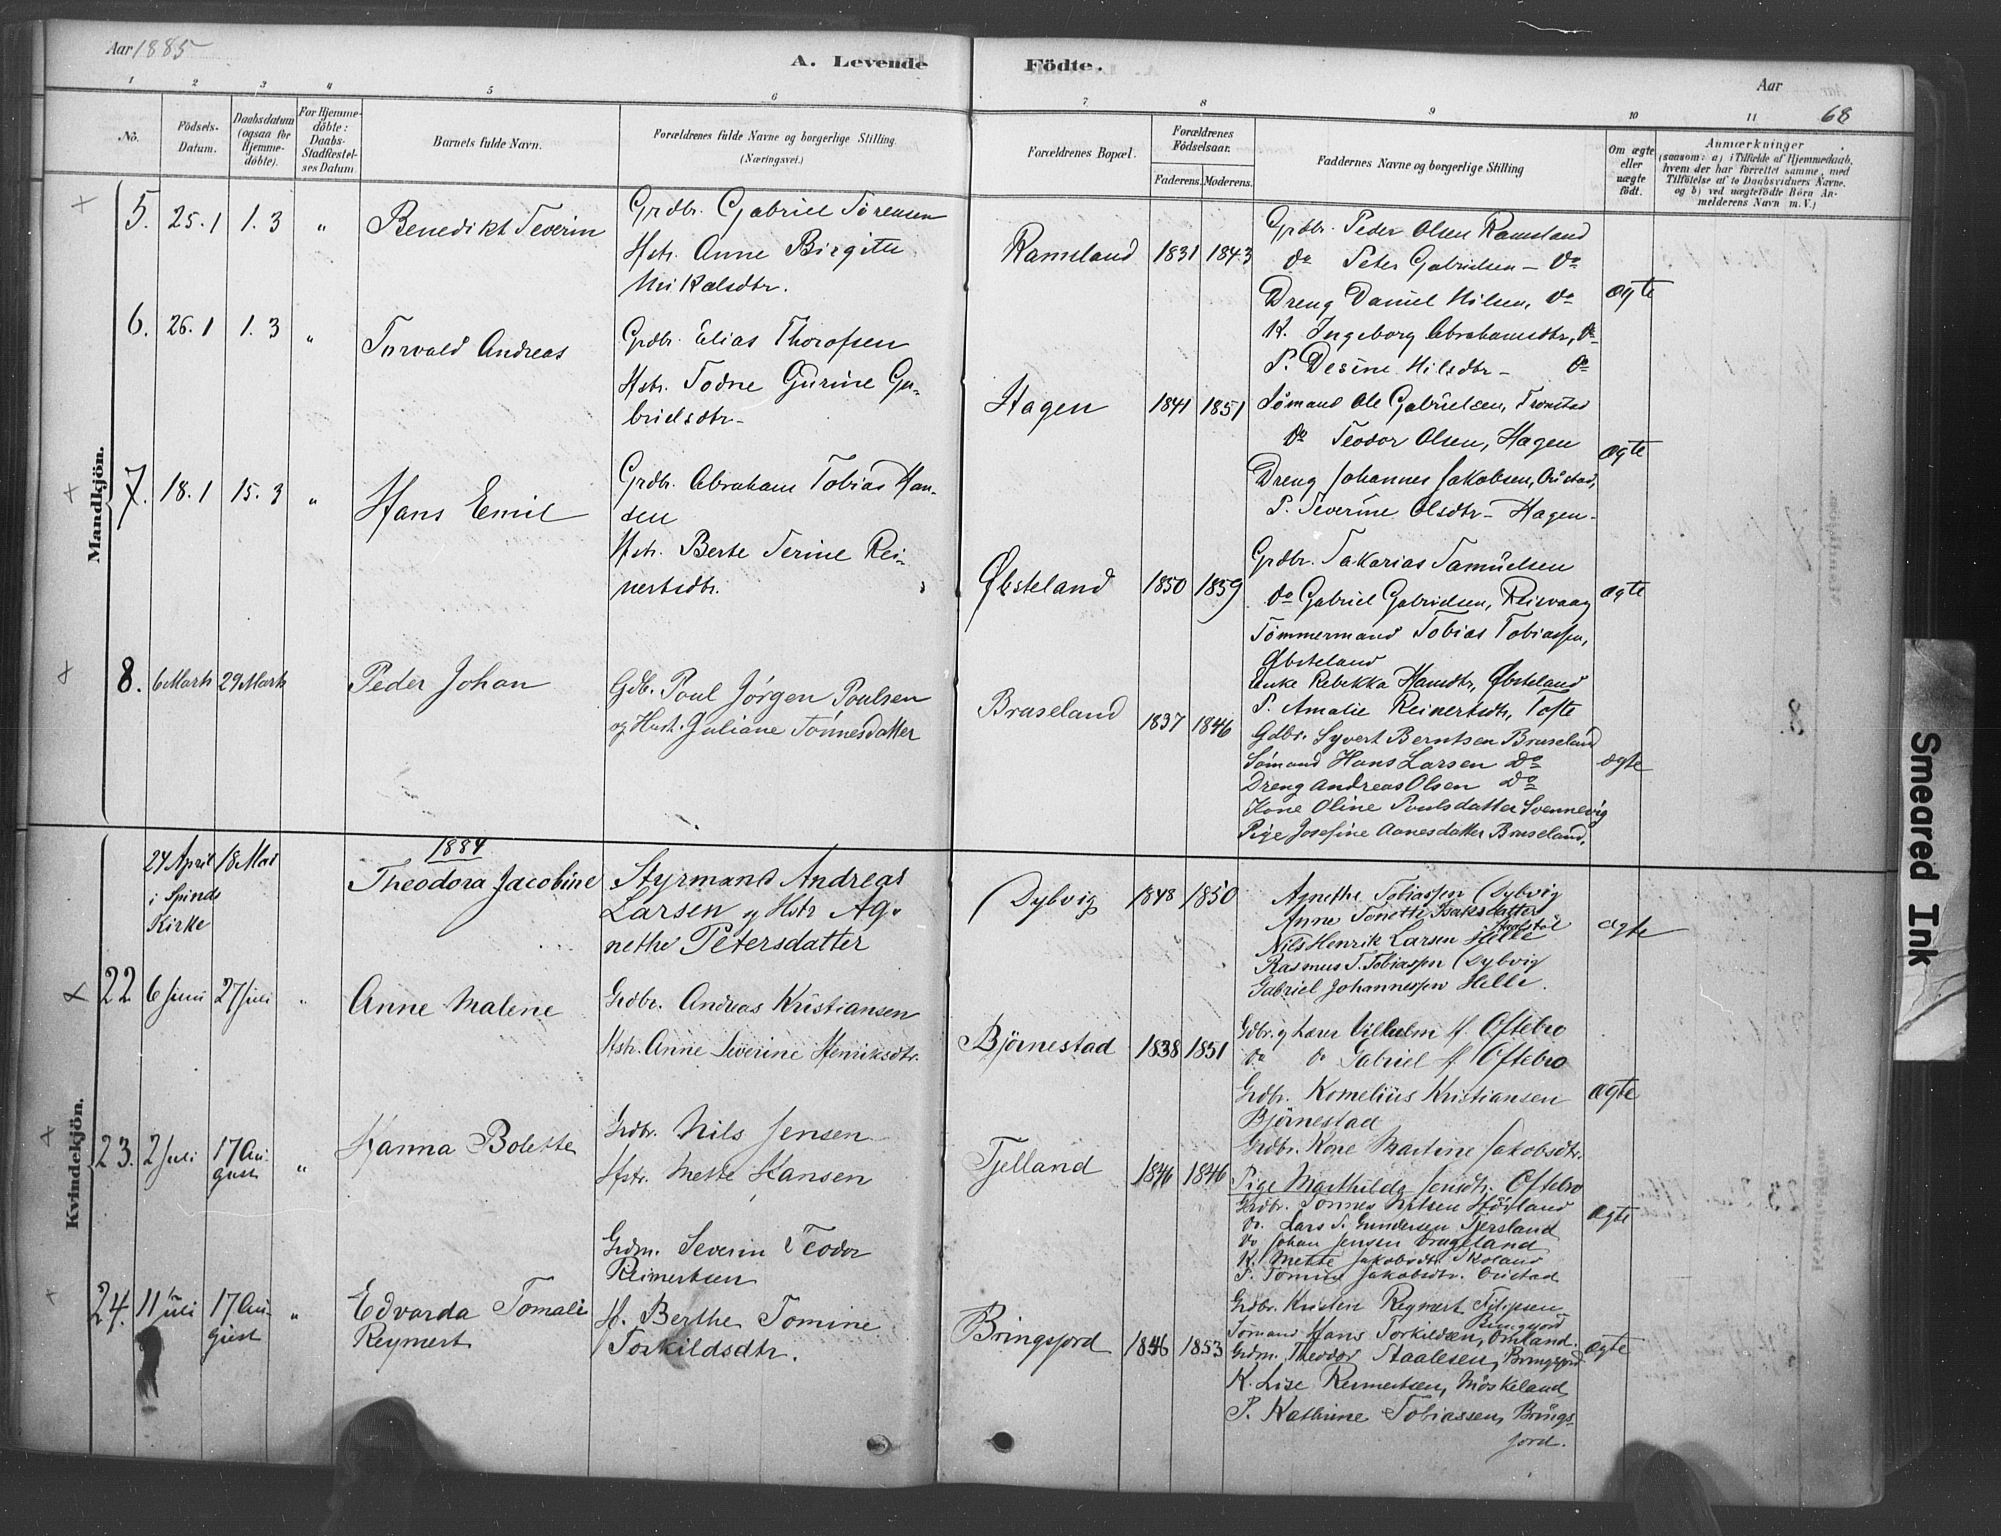 Aar 1885
A. Levende Födte.
Aar
68
1 2 3 4 5 6 7 8 9 10 11
No.
Födsels-Datum.
Daabsdatum (ogsaa for Hjemme-döbte).
For Hjemme-döbte: Daabs-Stadfestel-ses Datum
Barnets fulde Navn.
Forældrenes fulde Navne og borgerlige Stilling (Næringsvei.)
Forældrenes Bopæl.
Forældrenes Födselsaar.
Faderens. Moderens.
Faddernes Navne og borgerlige Stilling
Om ægte eller uægte födt.
Anmærkninger
(saasom: a) i Tilfælde af Hjemmedaab, hvem der har forrettet samme, med Tilföielse af to Daabsvidners Navne, og b) ved uægtefödte Börn An-melderens Navn m. V.)
Mandkjön.
5. 25.1 1.3 " Benedikt Severin
Grdbr. Gabriel Sörensen
Hstr. Anne Birgitte
Mikalsdtr.
Ramsland 1831 1843
Grdbr. Peder Olsen Ramsland
do Peter Gabrielsen – do
Dreng Daniel Nilsen, do
K. Ingeborg Abrahamsdtr, do
P. Desine Nilsdtr – do
ægte
6. 26.1 1.3 " Torvald Andreas
Grdbr. Elias Thorofsen
Hstr. Todne Gurine Ga-
brielsdtr-
Hagen 1841 1851
Sømand Ole Gabrielsen, Tronstad
do Teodor Olsen, Hagen
Dreng Johannes Jakobsen, Øistad,
P. Severine Olsdtr – Hagen.
ægte
7. 18.1 15.3 " Hans Emil
Grdbr. Abraham Tobias Han-
sen
Hstr. Berte Serine Rei-
nertsdtr.
Øbsteland 1850 1859
Grdbr. Sakarias Samuelsen
do Gabriel Gabrielsen, Reisvaag
Tømmermand Tobias Tobiassen,
Øbsteland
Enke Rebekka Hansdtr, Øbsteland
P. Amalie Reinertsdtr, Tofte
ægte
8. 6 Marts 29 Marts Peder Johan
Gdb. Poul Jørgen Poulsen
og Hust. Juliane Tønnesdatter
Bruseland 1837 1846
Gdbr. Syvert Berntsen Bruseland
Sømand Hans Larsen Do
Dreng Andreas Olsen Do
Kone Oline Poulsdatter Svennevig
Pige Josefine Aanesdatter Bruseland,
ægte
Kvindekjön.
1884
24 April 18 Mai Theodora Jacobine
i Spinds
Kirke
Styrmand Andreas
Larsen og Hstr Ag-
nethe Petersdatter
Dybvig 1848 1850
Agnethe Tobiassen Dybvig
Anne Tonette Isaksdatter
Nils Henrik Larsen Helle
Rasmus T. Tobiassen Dybvig
Gabriel Johannessen Helle.
ægte
22 6 Juni 27 Juli " Anne Malene
Grdbr. Andreas Kristiansen
Hstr. Anne Severine Henriksdtr.
Bjørnestad 1838 1851
Gdbr. og Lærer Vilhelm H. Oftebro
do do Gabriel H. Oftebro
Grdbr. Kornelius Kristiansen
Bjørnestad
Grdbr. Kone Martine Jakobsdtr.
Pige Mathilde Jensdtr. Oftebro
ægte
23. 2 Juli 17 Au-
gust " Hanna Bolette
Grdbr. Nils Jensen
Hstr. Mette Hansen
Tjelland 1846 1846
Grdbr. Tønnes Nilsen Høiland
do. Lars S. Gundersen Tjersland
do Johan Jensen Drageland
K. Mette Jakobsdtr. Skoland
P. Tomine Jakobsdtr. Øistad
ægte
24. 11 Juli 17 Au-
gust " Edvarda Tomali
Reymert
Grdm. Severin Teodor
Reimertsen
H. Berthe Tomine
Torkildsdtr.
Bringsjord 1846 1853
Grdbr. Kristen Reymert Filipsen
Bringsjord
Sømand Hans Torkildsen, Omland.
Grdm. Theodor Staalesen, Bringsjord
K. Lise Reimertsen, Møskeland
P. Kathrine Tobiassen, Brings-
jord.
ægte
Smeared Ink